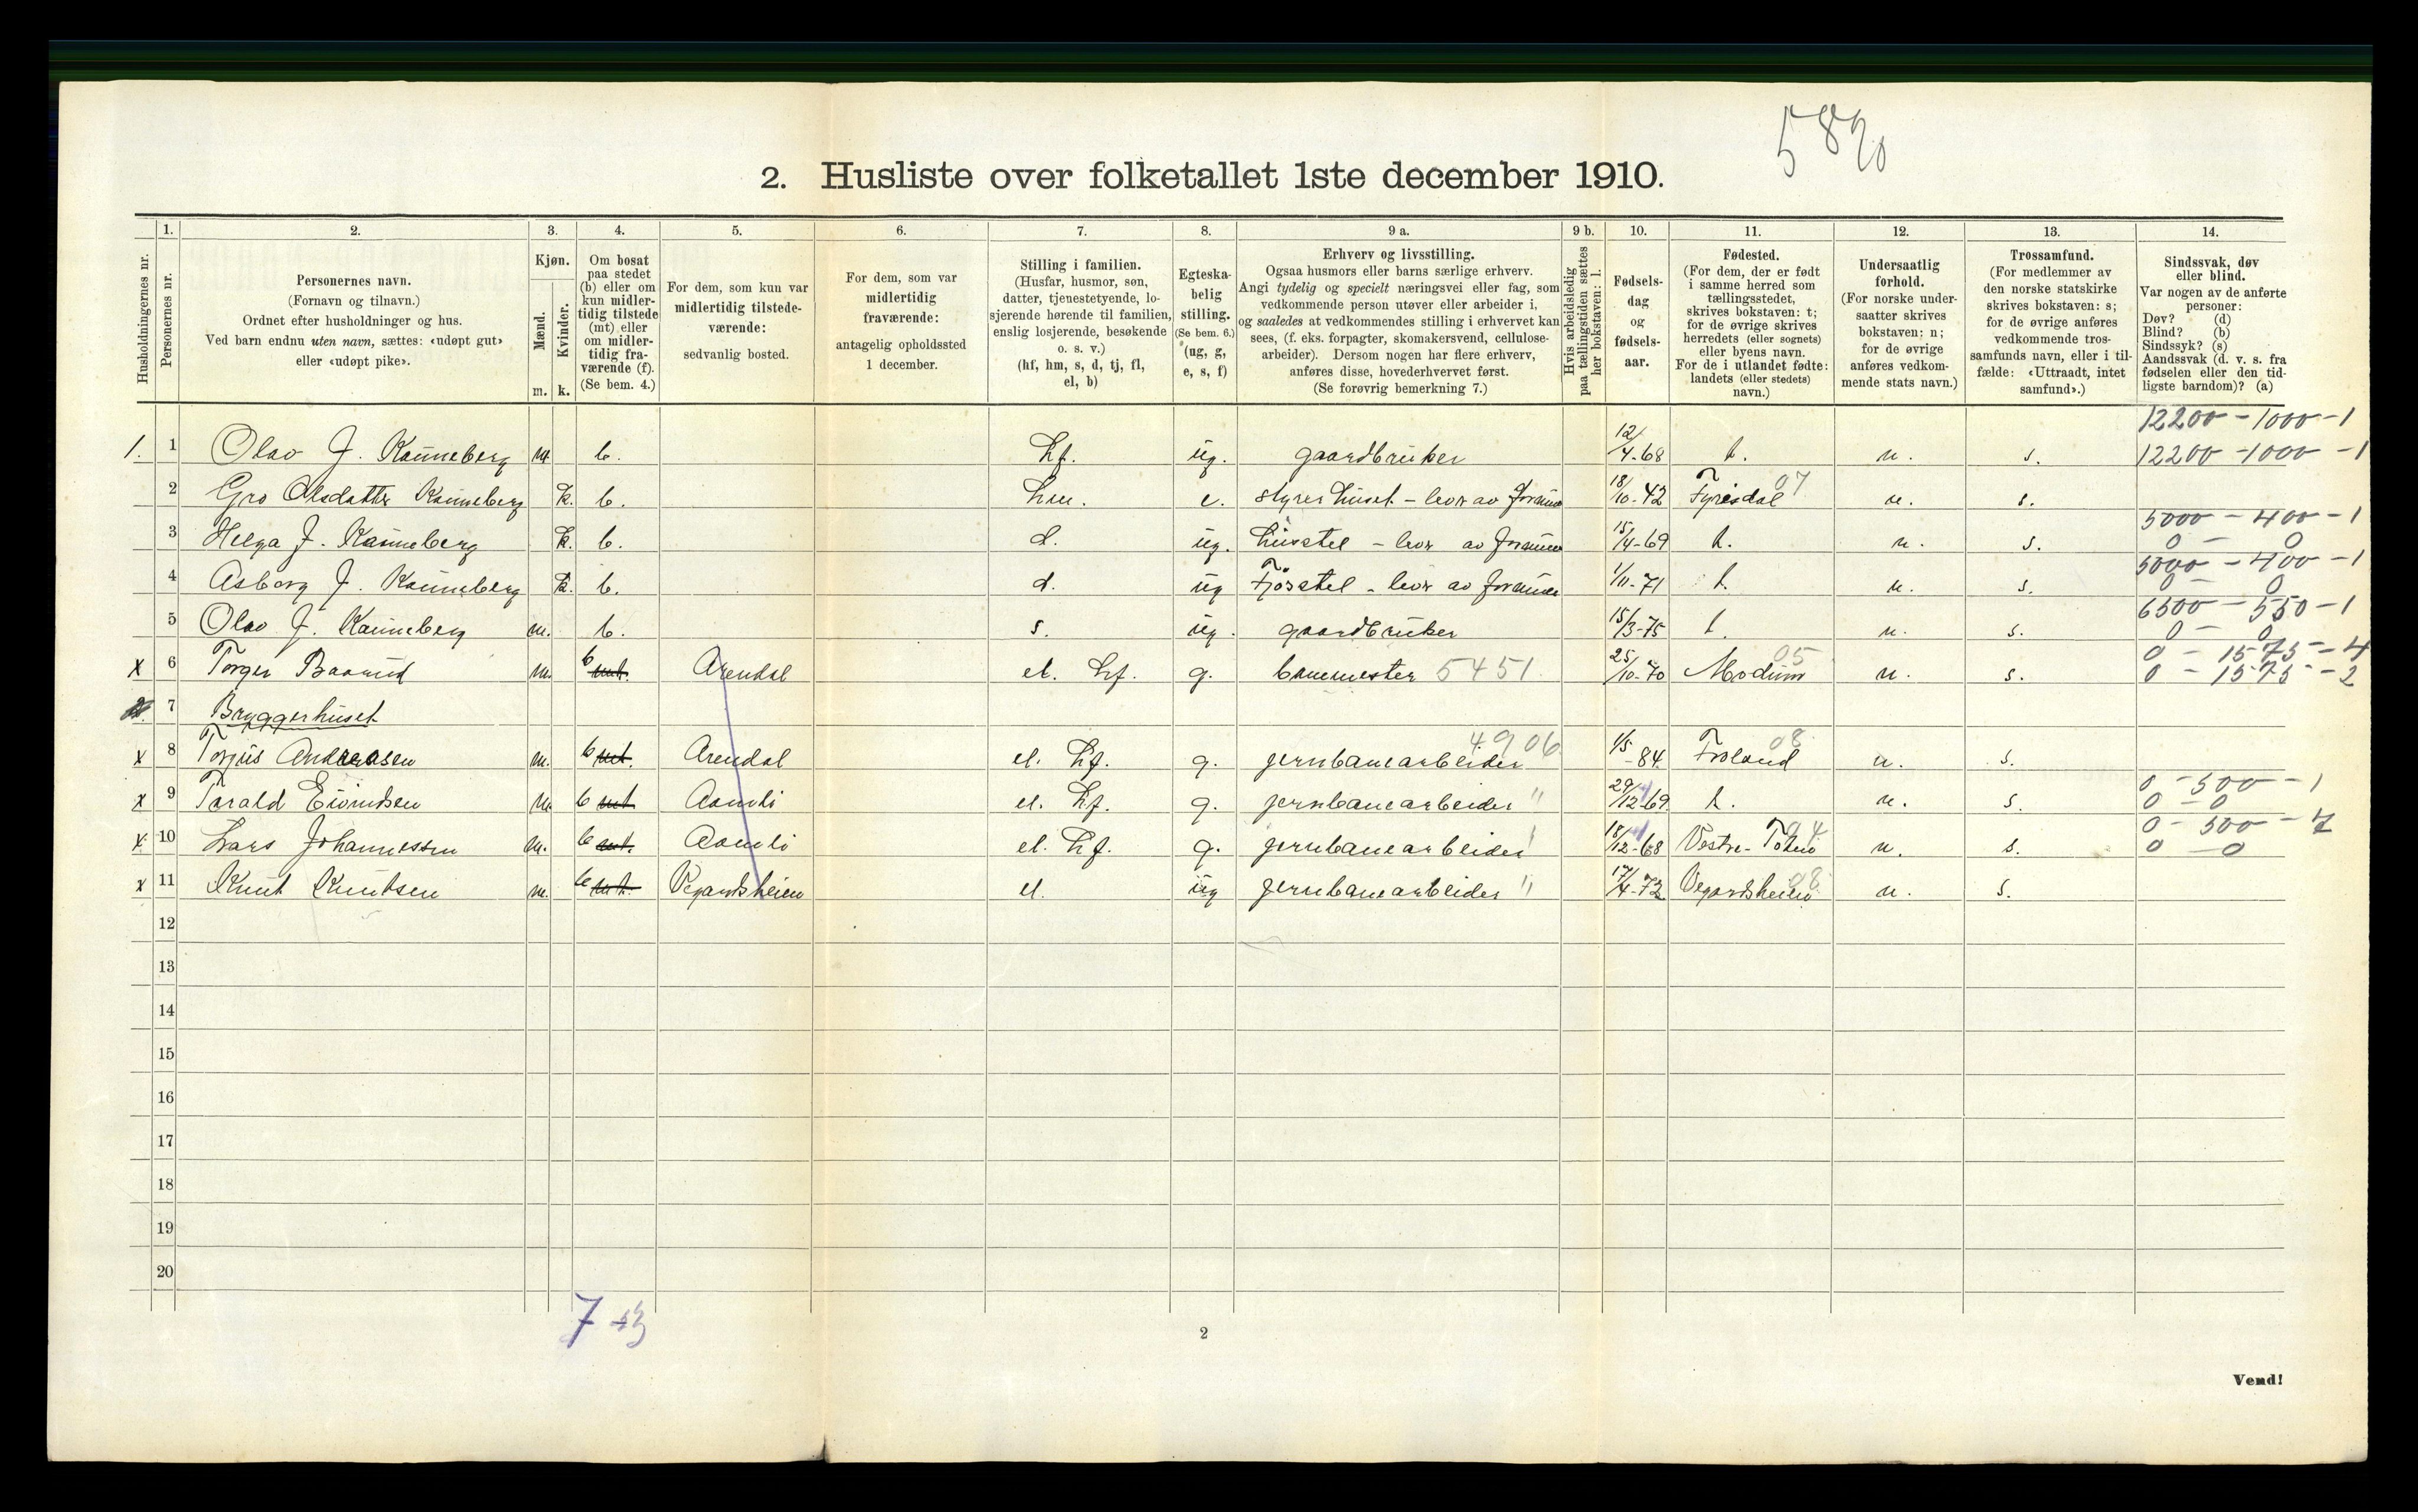 2. Husliste over folketallet 1ste december 1910.
1. 2. 3. 4. 5. 6. 7. 8. 9 a. 9 b. 10. 11. 12. 13. 14.
Husholdningernes nr.
Personernes nr.
Personernes navn.
(Fornavn og tilnavn.)
Ordnet efter husholdninger og hus.
Ved barn endnu uten navn, sættes: «udøpt gut»
eller «udøpt pike».
Kjøn.
Mænd.
Kvinder.
m. k.
Om bosat
paa stedet
(b) eller om
kun midler-
tidig tilstede
(mt) eller
om midler-
tidig fra-
værende (f).
(Se bem. 4.)
For dem, som kun var
midlertidig tilstede-
værende:
sedvanlig bosted.
For dem, som var
midlertidig
fraværende:
antagelig opholdssted
1 december.
Stilling i familien.
(Husfar, husmor, søn,
datter, tjenestetyende, lo-
sjerende hørende til familien,
enslig losjerende, besøkende
o. s. v.)
(hf, hm, s, d, tj, fl,
el, b)
Egteska-
belig
stilling.
(Se bem. 6.)
(ug, g,
e, s, f)
Erhverv og livsstilling.
Ogsaa husmors eller barns særlige erhverv.
Angi tydelig og specielt næringsvei eller fag, som
vedkommende person utøver eller arbeider i,
og saaledes at vedkommendes stilling i erhvervet kan
sees, (f. eks. forpagter, skomakersvend, cellulose-
arbeider). Dersom nogen har flere erhverv,
anføres disse, hovederhvervet først.
(Se forøvrig bemerkning 7.)
Hvis arbeidsledig
paa tællingstiden sættes
her bokstaven: l.
Fødsels-
dag
og
fødsels-
aar.
Fødested.
(For dem, der er født
i samme herred som
tællingsstedet,
skrives bokstaven: t;
for de øvrige skrives
herredets (eller sognets)
eller byens navn.
For de i utlandet fødte:
landets (eller stedets)
navn.)
Undersaatlig
forhold.
(For norske under-
saatter skrives
bokstaven: n;
for de øvrige
anføres vedkom-
mende stats navn.)
Trossamfund.
(For medlemmer av
den norske statskirke
skrives bokstaven: s;
for de øvrige anføres
vedkommende tros-
samfunds navn, eller i til-
fælde: «Uttraadt, intet
samfund».)
Sindssvak, døv
eller blind.
Var nogen av de anførte
personer:
Døv? (d)
Blind? (b)
Sindssyk? (s)
Aandssvak (d. v. s. fra
fødselen eller den tid-
ligste barndom)? (a)
12200 - 1000 - 1
1. 1 Olav J. Kauneberg m. b. hf. ug. gaardbruker 12/4-68 t. n. s. 12200 - 1000 - 1
2 Gro Olsdatter Kauneberg k. b. hm. e. styrer huset - lever av formue 18/10-42 Fyrisdal 07 n. s.
5000 - 400 - 1
3 Helga J. Kauneberg k. b. d. ug. husstel - lever av formue 15/4-69 t. n. s. 0 - 0
5000 - 400 - 1
4 Asborg J. Kauneberg k. b. d. ug Fjøsstel - lever av formue 1/11-71 t. n. s. 0 - 0
6500 - 550 - 1
5 Olav J. Kauneberg m. b. s. ug. gaardbruker 15/3-75 t. n. s. 0 - 0
0 - 1575 - 4
x 6 Torger m. b mt. Arendal el. hf. g. banemester 5451 25/10-70 Modum 05 n. s. 0 - 1575 - 2
7 Bryggerhuset
x 8 Torjus Andreasen m. b mt. Arendal el. hf. g. jernbanearbeider 4906 1/5-84 Froland 08 n. s.
0 - 500 - 1
x 9 Tarald Eivindsen m. b mt Aamli el. hf. g. jernbanearbeider " 29/12-69 t. n. s. 0 - 0
0 - 500 - 7
x 10 Lars Johannessen m. b mt. Aamli el. hf. g. jernbanearbeider 18/12-68 Vestre-Toten 04 n. s. 0 - 0
x 11 Knut Knutsen m. b mt. Vegardsheien el. ug jernbanearbeider " 17/4-72 Vegardsheien 08 n. s.
12
13
14
15
16
17
18
19
20
7
2
Vend!